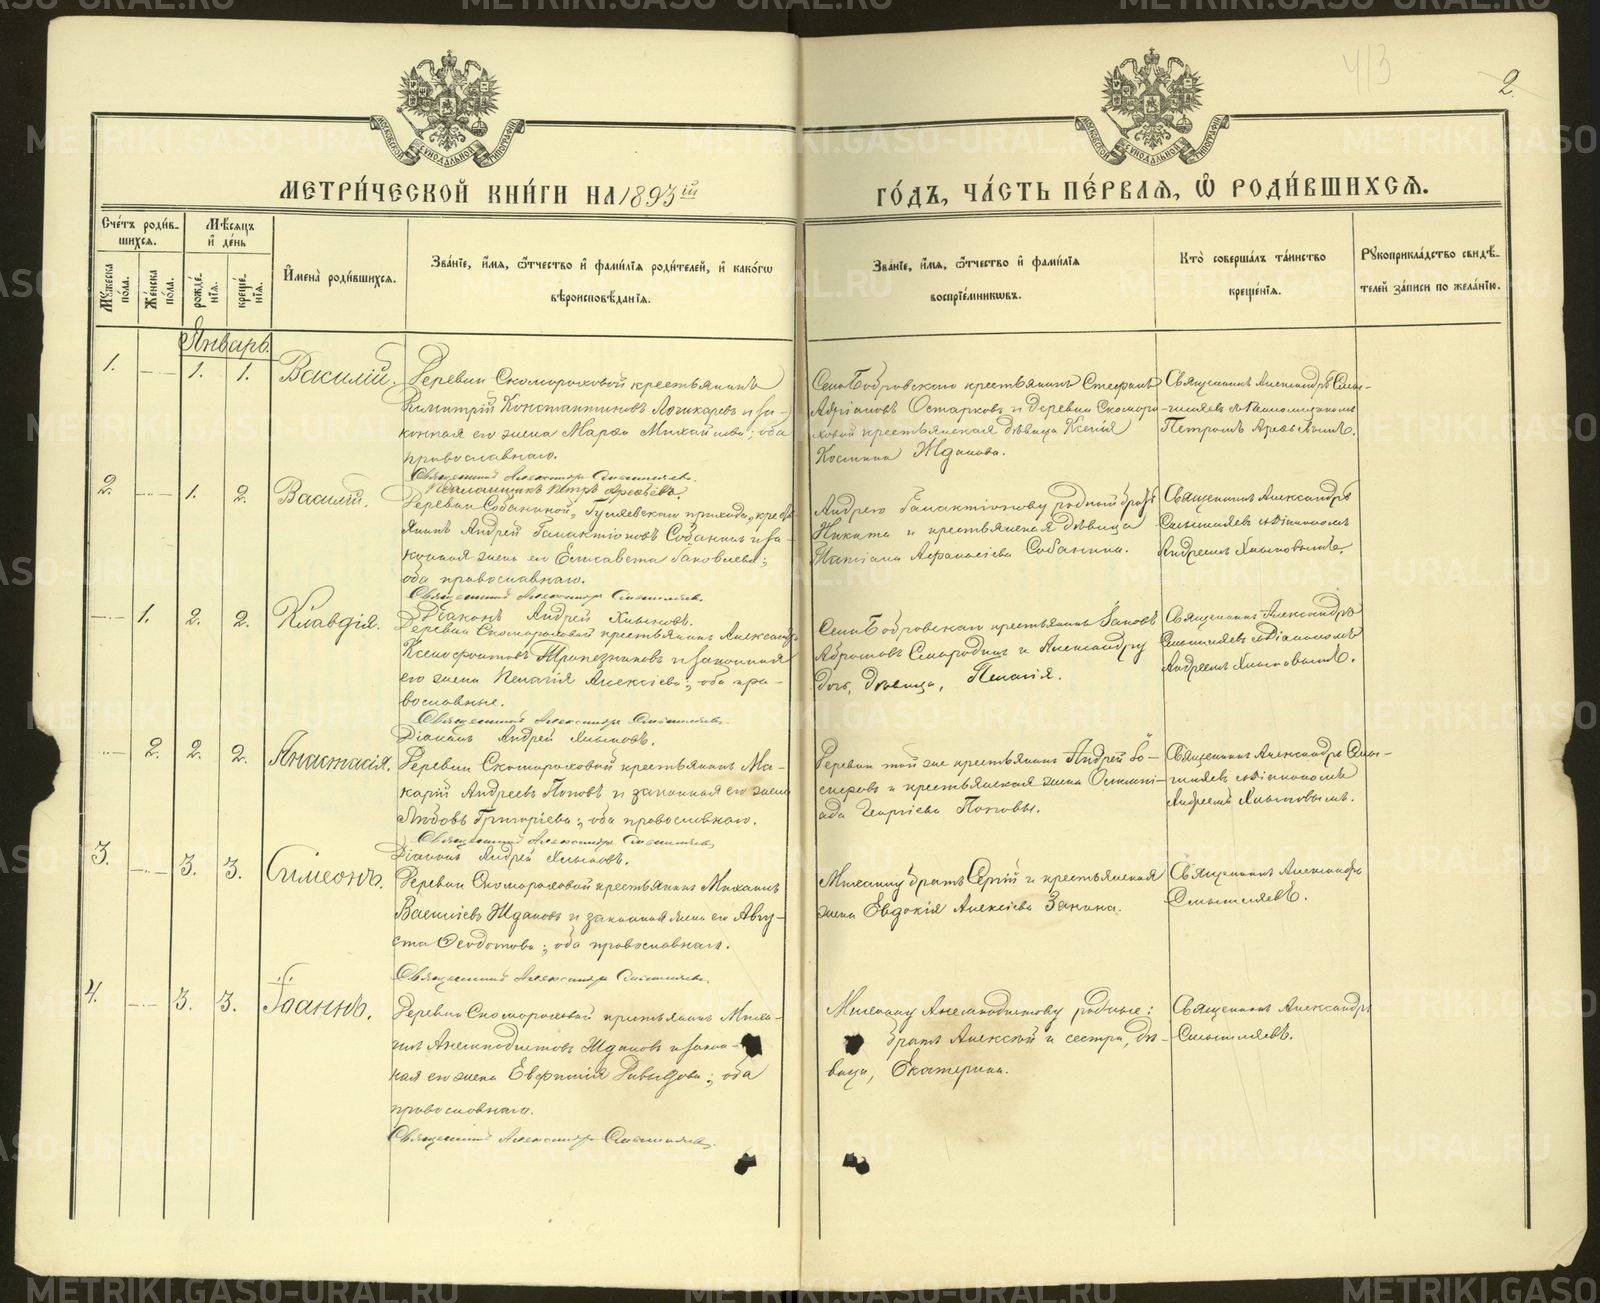 413
2.
МОСКОВСКОЙ СѴНОДАЛЬНОЙ ТИПОГРАФІИ
МОСКОВСКОЙ СѴНОДАЛЬНОЙ ТИПОГРАФІИ
МЕТРИ́ЧЕСКОЙ КНИ́ГИ НА 1893 ій
ГО́ДЪ, ЧА́СТЬ ПЕ́РВАЯ, Ѡ҆ РОДИ́ВШИХСЯ.
Сче́тъ роди́в-
шихся.
Мѣ́сяцъ
и҆ де́нь
Му́жеска по́ла.
Же́нска по́ла.
рожде́-
нїя.
креще́-
нїя.
И҆мена̀ роди́вшихся.
Зва́нїе, и҆́мя, ѻ҆́тчество и҆ фами́лїя роди́телей, и҆ како́гѡ
вѣроисповѣ́данїя.
Зва́нїе, и҆́мя, ѻ҆́тчество и҆ фами́лїя
воспрїе́мниковъ.
Кто̀ соверша́лъ та́инство
креще́нїя.
Рꙋкоприкла́дство свидѣ́-
телей за́писи по жела́нїю.
Январь
1. 1. 1. Василій.
Деревни Скомороховой крестьянинъ
Димитрій Константиновъ и за-
конная его жена Марѳа Михайлова; оба
православнаго.
Священникъ Александръ Смышляевъ.
Псаломщикъ Петръ Арефьевъ.
Села Бобровскаго крестьянинъ Стефанъ
Адріановъ Остарковъ и деревни Скоморо-
ховой крестьянская дѣвица Ксенія
Костина Жданова.
Священникъ Александръ Смы-
шляевъ съ Псаломщикомъ
Петромъ Арефьевымъ.
2. 1. 2. Василій.
Деревни Собаниной, Гуляевскаго прихода, кресть-
янинъ Андрей Галактіоновъ Собанинъ и за-
конная жена его Елисавета Іаковлева;
оба православнаго.
Священникъ Александръ Смышляевъ.
Діаконъ Андрей Хлыновъ.
Андрею Галактіонову родный братъ
Никита и крестьянская дѣвица
Татіана Аѳанасіева Собанина.
Священникъ Александръ
Смышляевъ съ Діакономъ
Андреемъ Хлыновымъ.
1. 2. 2. Клавдія.
Деревни Скомороховой крестьянинъ Александръ
Ксенофонтовъ Трапезниковъ и законная
его жена Пелагія Алексіева; оба пра-
вославные.
Священникъ Александръ Смышляевъ.
Діаконъ Андрей Хлыновъ.
Села Бобровскаго крестьянинъ Іаковъ
Абрамовъ Смородинъ и Александру
дочь, дѣвица, Пелагія.
Священникъ Александръ
Смышляевъ съ Діакономъ
Андреемъ Хлыновымъ.
2. 2. 2. Анастасія.
Деревни Скомороховой крестьянинъ Ма-
карій Андреевъ Поповъ и законная его жена
Любовь Григоріева; оба православнаго.
Священникъ Александръ Смышляевъ.
Діаконъ Андрей Хлыновъ.
Деревни той же крестьянинъ Андрей Іо-
сифовъ и крестьянская жена Олимпі-
ада Георгіева Поповы.
Священникъ Александръ Смы-
шляевъ съ Діакономъ
Андреемъ Хлыновымъ.
3. 3. 3. Симеонъ.
Деревни Скомороховой крестьянинъ Михаилъ
Василіевъ Ждановъ и законная жена его Авгу-
ста Ѳеодотова; оба православнаго.
Священникъ Александръ Смышляевъ.
Михаилу братъ Сергій и крестьянская
жена Евдокія Алексіева Занина.
Священникъ Александръ
Смышляевъ.
4. 3. 3. Іоаннъ.
Деревни Скомороховой крестьянинъ Миха-
илъ Анемподистовъ Ждановъ и закон-
ная его жена Евфимія Давыдова; оба
православнаго.
Священникъ Александръ Смышляевъ.
Михаилу Анемподистову родные:
братъ Алексѣй и сестра, дѣ-
вица, Екатерина.
Священникъ Александръ
Смышляевъ.
METRIKI.GASO-URAL.RU